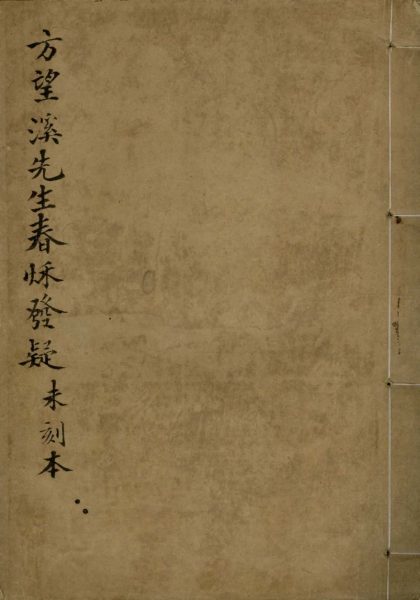 方望溪先生春秌發疑未刻本